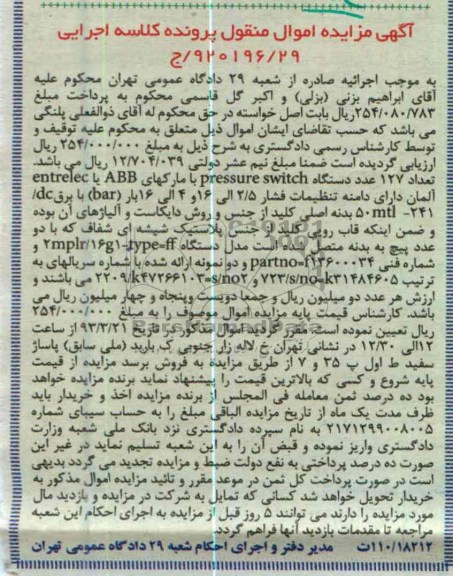 آگهی مزایده اموال منقول پرونده کلاسه اجرایی
۹۲۰۱۹۶/۲۹/ج
به موجب اجرائیه صادره از شعبه ۲۹ دادگاه عمومی تهران محکوم علیه
آقای ابراهیم بزنی (بزلی) و اکبر گل قاسمی محکوم به پرداخت مبلغ
۲۵۴/۰۸۰/۷۸۳ریال بابت اصل خواسته در حق محکوم له آقای ذوالفعلی پلنگی
می باشد که حسب تقاضای ایشان اموال ذیل متعلق به محکوم علیه توقیف و
توسط کارشناس رسمی دادگستری به شرح ذیل به مبلغ ۲۵۴/۰۰۰/۰۰۰ ریال
ارزیابی گردیده است ضمنا مبلغ نیم عشر دولتی ۱۲/۷۰۴/۰۳۹ ریال می باشد.
تعداد ۱۲۷ عدد دستگاه pressure switch با مارکهای ABB یا entrelec
آلمان دارای دامنه تنظیمات فشار ۲/۵ الی ۱۶و ۴ الی ۱۶بار (bar) با برقdc/
۲۴۱- ۵۰mtl بدنه اصلی کلید از جنس و روش دایکاست و آلیاژهای آن بوده
و ضمن اینکه قاب روی کلید از جنس پلاستیک شیشه ای شفاف که با دو
عدد پیچ به بدنه متصل شده است مدل دستگاه 2mplr/16g1-type=ff و
شماره فنی partno=f۱۳۶۰۰۰۳۴ و دو نمونه ارائه شده با شماره سریالهای به
ترتیب ۷۲۳/s/no=k۳۱۴۸۴۶۰۵ و ۲۲۰۹/k۴۷۲۶۶۱۰۳=s/nov می باشند و
ارزش هر عدد دو میلیون ریال و جمعا دویست وپنجاه و چهار میلیون ریال می
باشد. کارشناس قیمت پایه مزایده اموال موصوف را به مبلغ ۲۵۴/۰۰۰/۰۰۰
ریال تعیین نموده است. مقرر گردید اموال مذکور در تاریخ ۹۳/۳/۲۱ از ساعت
۱۲الی ۱۲/۳۰ در نشانی تهران خ لاله زار جنوبی ک باربد (ملی سابق) پاساژ
سفید ط اول پ ۳۵ و ۷ از طریق مزایده به فروش برسد مزایده از قیمت
پایه شروع و کسی که بالاترین قیمت را پیشنهاد نماید برنده مزایده خواهد
بود ده درصد ثمن معامله فی المجلس از برنده مزایده اخذ و خریدار باید
ظرف مدت یک ماه از تاریخ مزایده الباقی مبلغ را به حساب سیبای شماره
۲۱۷۱۲۹۹۰۰۸۰۰۵ به نام سپرده دادگستری نزد بانک ملی شعبه وزارت
دادگستری واریز نموده و قبض آن را به این شعبه تسلیم نماید در غیر این
صورت ده درصد پرداختی به نفع دولت ضبط و مزایده تجدید می گردد بدیهی
است در صورت پرداخت کل ثمن در موعد مقرر و تائید مزایده اموال مذکور به
خریدار تحویل خواهد شد کسانی که تمایل به شرکت در مزایده و بازدید مال
مورد مزایده را دارند می توانند ۵ روز قبل از مزایده به اجرای احکام این شعبه
مراجعه تا مقدمات بازدید آنها فراهم گردد.
۱۱۰/۱۸۲۱۲ت مدیر دفتر و اجرای احکام شعبه ۲۹ دادگاه عمومی تهران